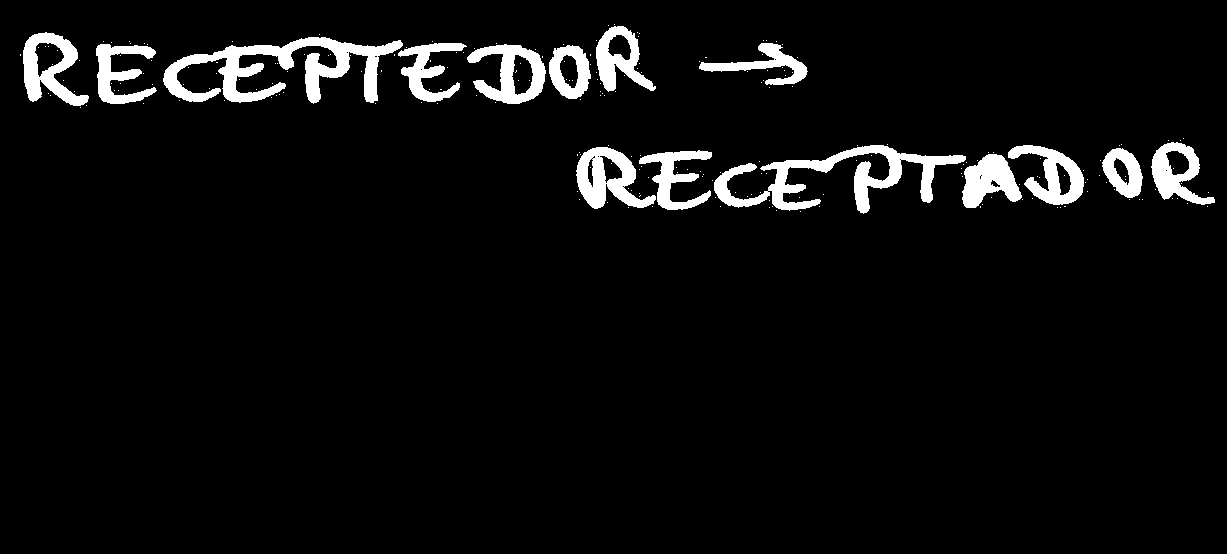 RECEPTEDOR →
RECEPTADOR